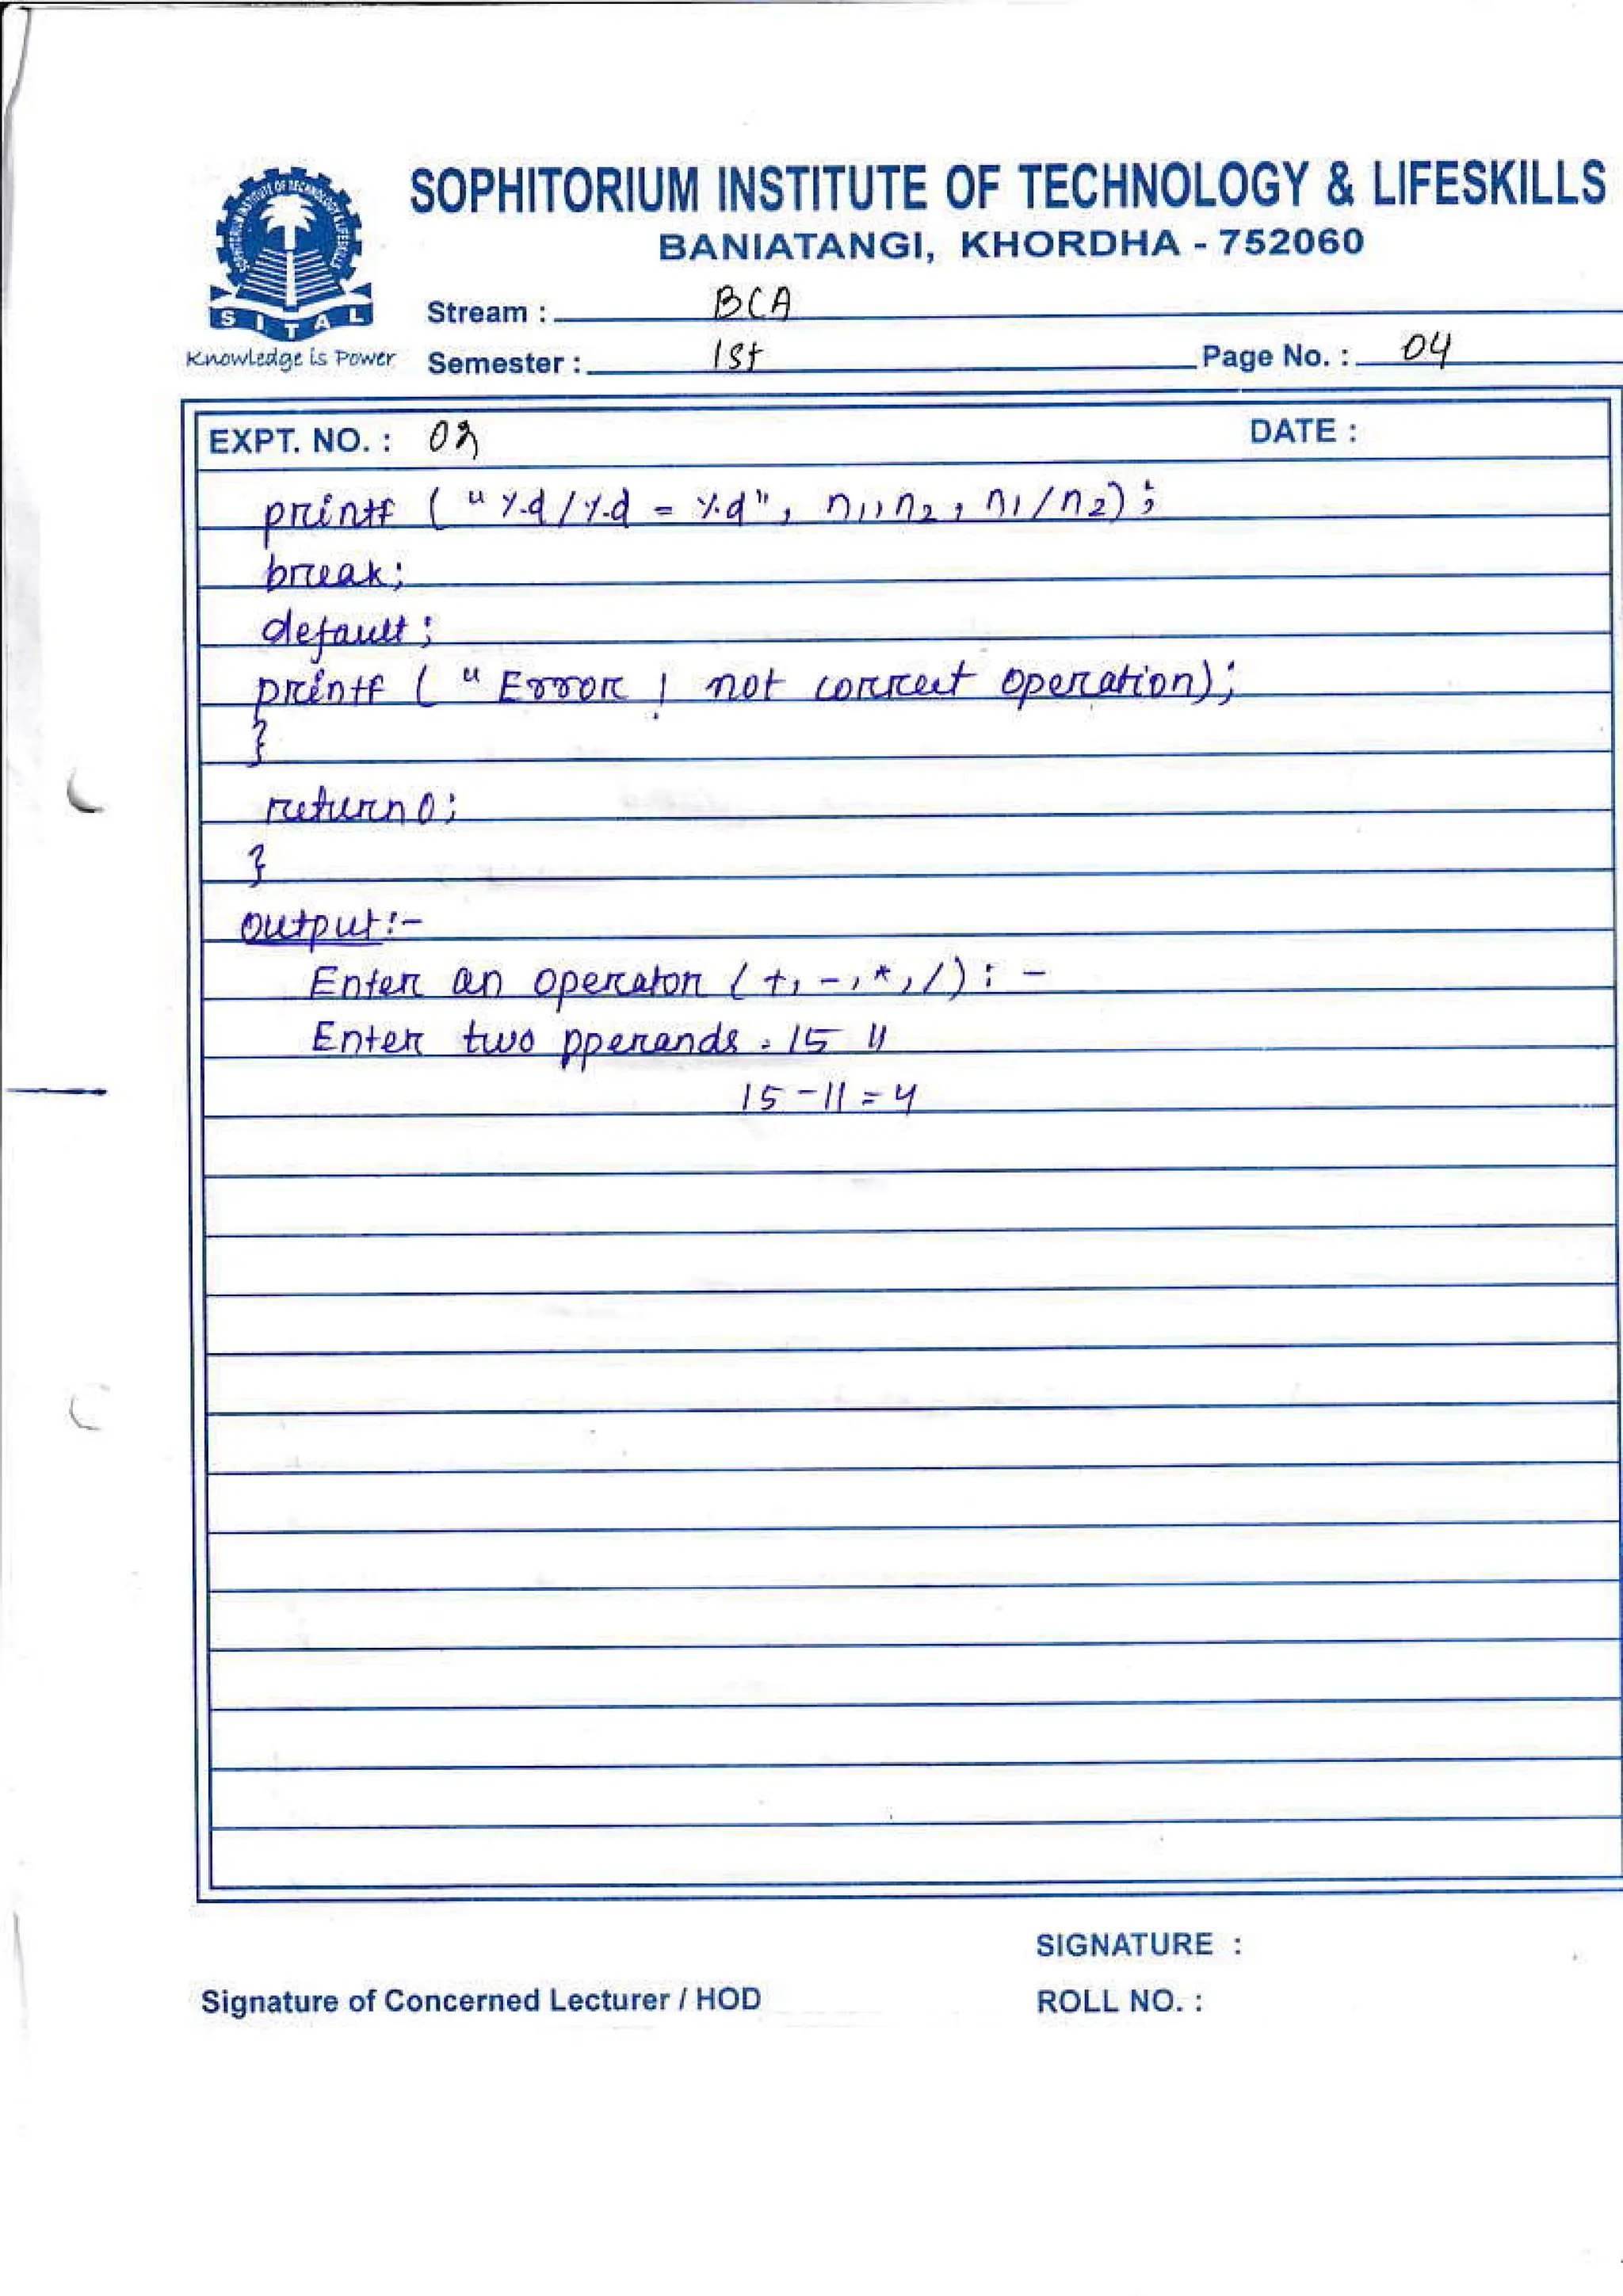 SOPHITORIUM INSTITUTE OF TECHNOLOGY & LIFESKILLS
BANIATANGI, KHORDHA - 752060
SOPHITORIUM INSTITUTE OF TECHNOLOGY & LIFESKILLS
SITAL
Knowledge is Power
Stream : BCA
Semester : 1st Page No. : 04
EXPT. NO. : 02 DATE :
printf ( "%d/%d = %d", n1,n2, n1/n2);
break;
default;
printf ( "Error! not correct operation);
}
return 0;
}
output:-
Enter an operator (+, -, *, /) : -
Enter two pperands : 15 11
15 - 11 = 4
SIGNATURE :
Signature of Concerned Lecturer / HOD ROLL NO. :